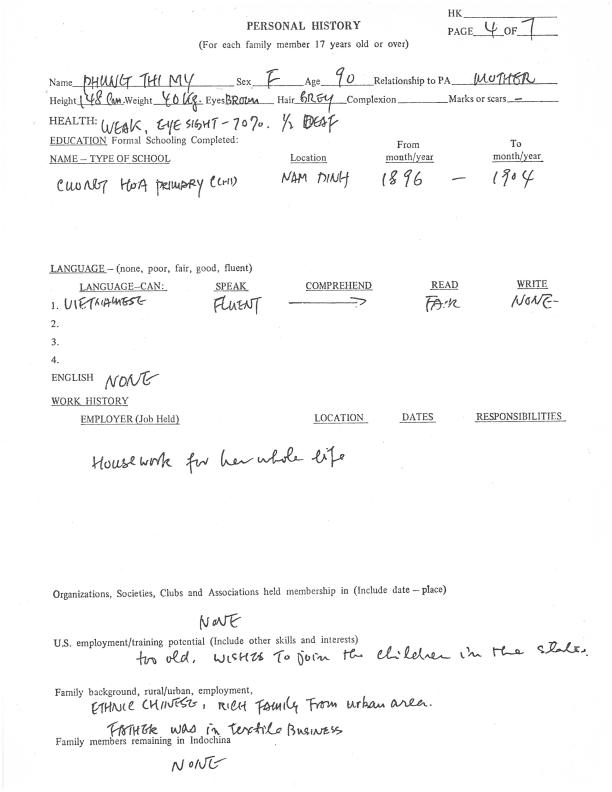 HK
PERSONAL HISTORY
PAGE 4 OF 7
(For each family member 17 years old or over)
Name PHUNG THI MY Sex F Age 90 Relationship to PA MOTHER
Height 148 Cm. Weight 40 Kg. Eyes BROWN Hair GREY Complexion Marks or scars —
HEALTH: WEAK, EYE SIGHT - 70%. 1/2 DEAF
EDUCATION Formal Schooling Completed:
From To
NAME – TYPE OF SCHOOL Location month/year month/year
CHUONG HOA PRIMARY NAM DINH 1896 — 1904
LANGUAGE – (none, poor, fair, good, fluent)
LANGUAGE–CAN: SPEAK COMPREHEND READ WRITE
1. VIETNAMESE FLUENT → FAIR NONE
2.
3.
4.
ENGLISH NONE
WORK HISTORY
EMPLOYER (Job Held) LOCATION DATES RESPONSIBILITIES
Housework for her whole life
Organizations, Societies, Clubs and Associations held membership in (Include date – place)
NONE
U.S. employment/training potential (Include other skills and interests)
too old. WISHES To join the children in the state.
Family background, rural/urban, employment,
ETHNIC CHINESE, RICH FAMILY From urban area.
FATHER was in textile Business
Family members remaining in Indochina
NONE